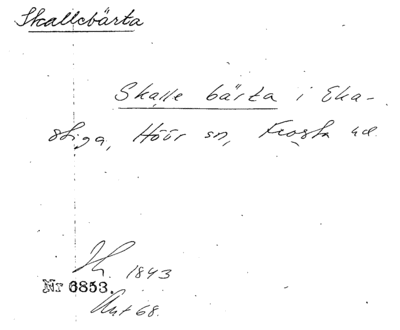 Skallebärta
Skalle bärta i Eka-
stiga, Höör sn, Frosta hd.
1843
Nr 6853.
Avt 68.